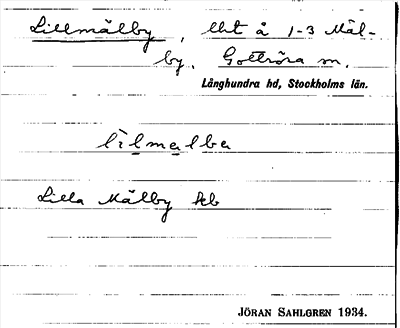 Lillmälby, lht å 1-3 Mäl-
by. Gottröra sn.
Långhundra hd, Stockholms län.
lìlmalba
Lilla Mälby hb
JÖRAN SAHLGREN 1934.